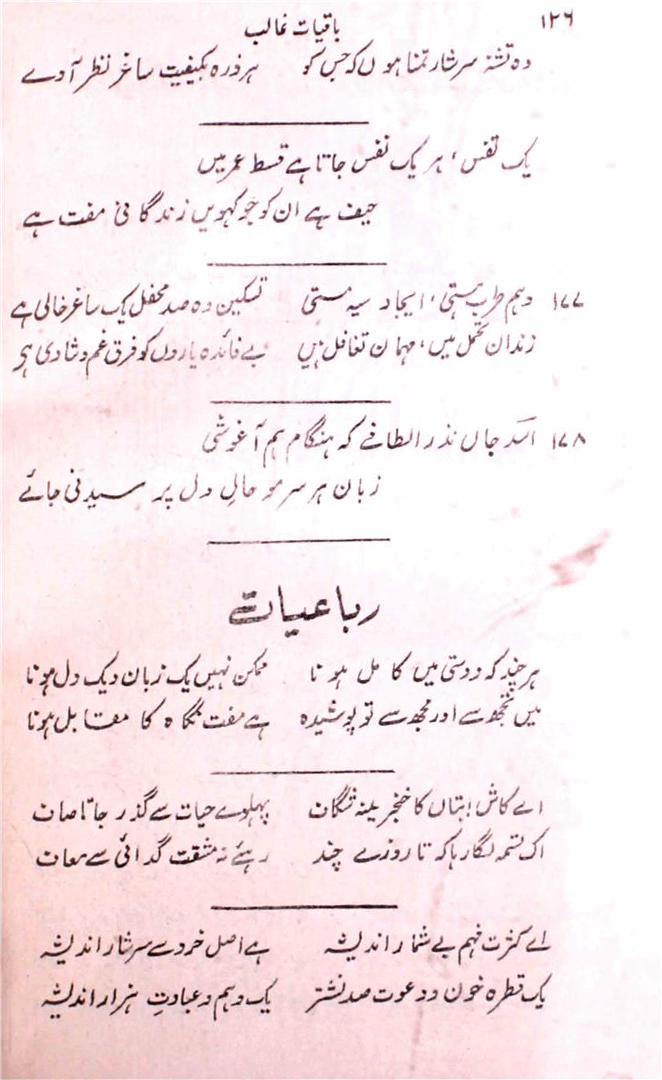 ۱۲۶
باقیات غالب
وہ تشنۂ سرشار تمنا ہوں کہ جس کو ہر ذرہ بکیفیت ساغر نظر آوے
یک نفس، ہر یک نفس جاتا ہے قسط عمر میں
حیف ہے ان کو جو کہویں زندگانی مفت ہے
۱۷۷ وہم طرب ہستی، ایجاد سیہ مستی تسکین دہ صد محفل یک ساغر خالی ہے
زندان تحمل میں، مہمان تغافل ہیں بے فائدہ یاروں کو فرق غم و شادی ہے
۱۷۸ اسد جاں نذر الطافے کہ ہنگام ہم آغوشی
زبان ہر سر مو حالِ دل پر سیدنی جانے
رباعیات
ہر چند کہ دوستی میں کامل ہونا ممکن نہیں یک زبان و یک دل ہونا
میں تجھ سے اور مجھ سے تو پوشیدہ ہے مفت نگاہ کا مقابل ہونا
اے کاش! بتاں کا خنجر سینہ شگاف پہلوے حیات سے گذر جاتا صاف
اک تسمہ لگا رہا کہ تا روزے چند رہئے نہ مشقت گدائی سے معاف
اے کثرت فہم بے شمار اندیشہ ہے اصل خرد سے شرمسار اندیشہ
یک قطرہ خون و دعوت صد نشتر یک وہم و عبادتِ ہزار اندیشہ